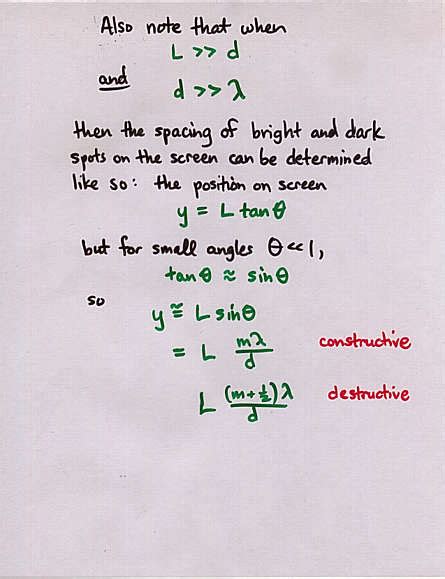 Also note that when
L >> d
and d >> λ
then the spacing of bright and dark
spots on the screen can be determined
like so: the position on screen
y = L tanθ
but for small angles θ<<1,
tanθ ≈ sinθ
so
y ≅ L sinθ
= L mλ/d constructive
L (m+½)λ/d destructive